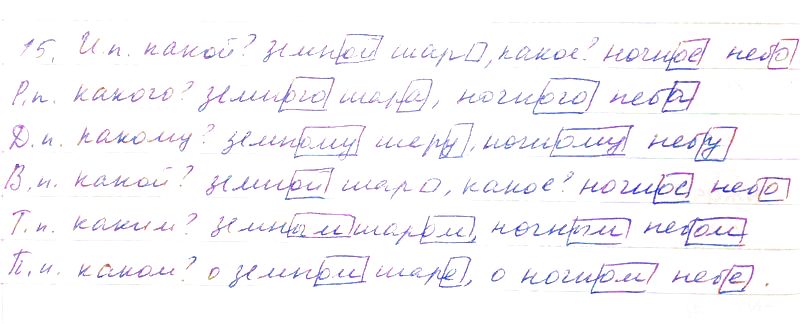 15. И.п. какой? земной шар, какое? ночное небо
Р.п. какого? земного шара, ночного неба
Д.п. какому? земному шару, ночному небу
В.п. какой? земной шар, какое? ночное небо
Т.п. каким? земным шаром, ночным небом
П.п. каком? о земном шаре, о ночном небе.